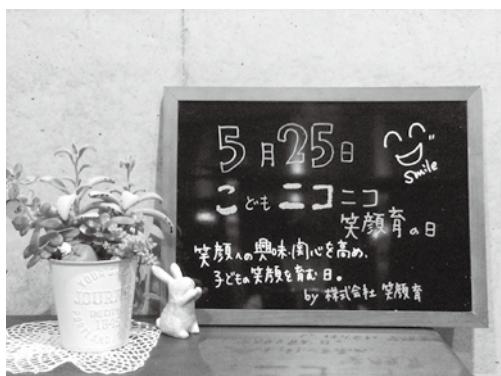 5月25日
smile
こども ニコニコ
笑顔育の日
笑顔への興味・関心を高め、
子どもの笑顔を育む日。
by 株式会社 笑顔育
JOURNEY